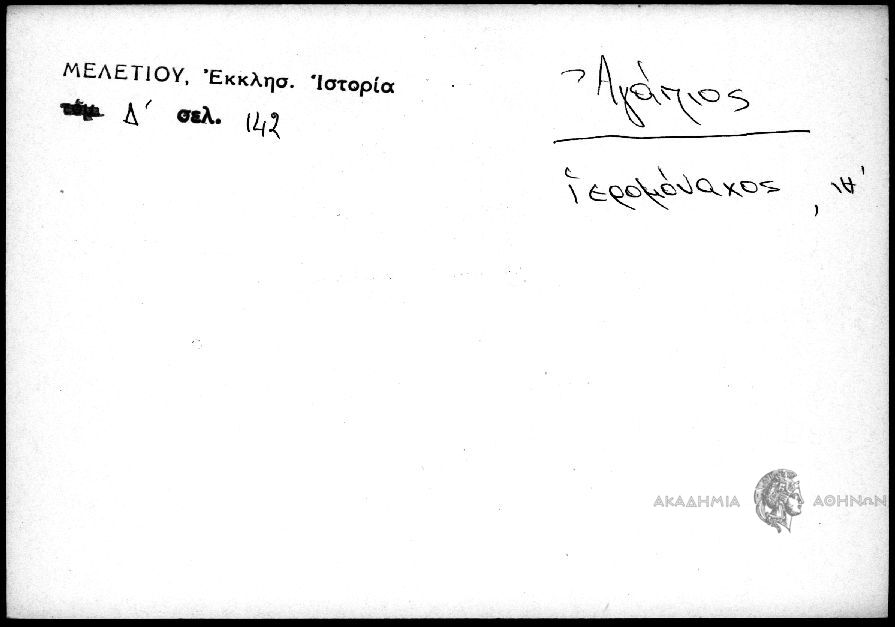 ΜΕΛΕΤΙΟΥ, Ἐκκλησ. Ἱστορία
τόμ Δ΄ σελ. 142
Ἀγάπιος
ἱερομόναχος,
ΑΚΑΔΗΜΙΑ ΑΘΗΝΩΝ